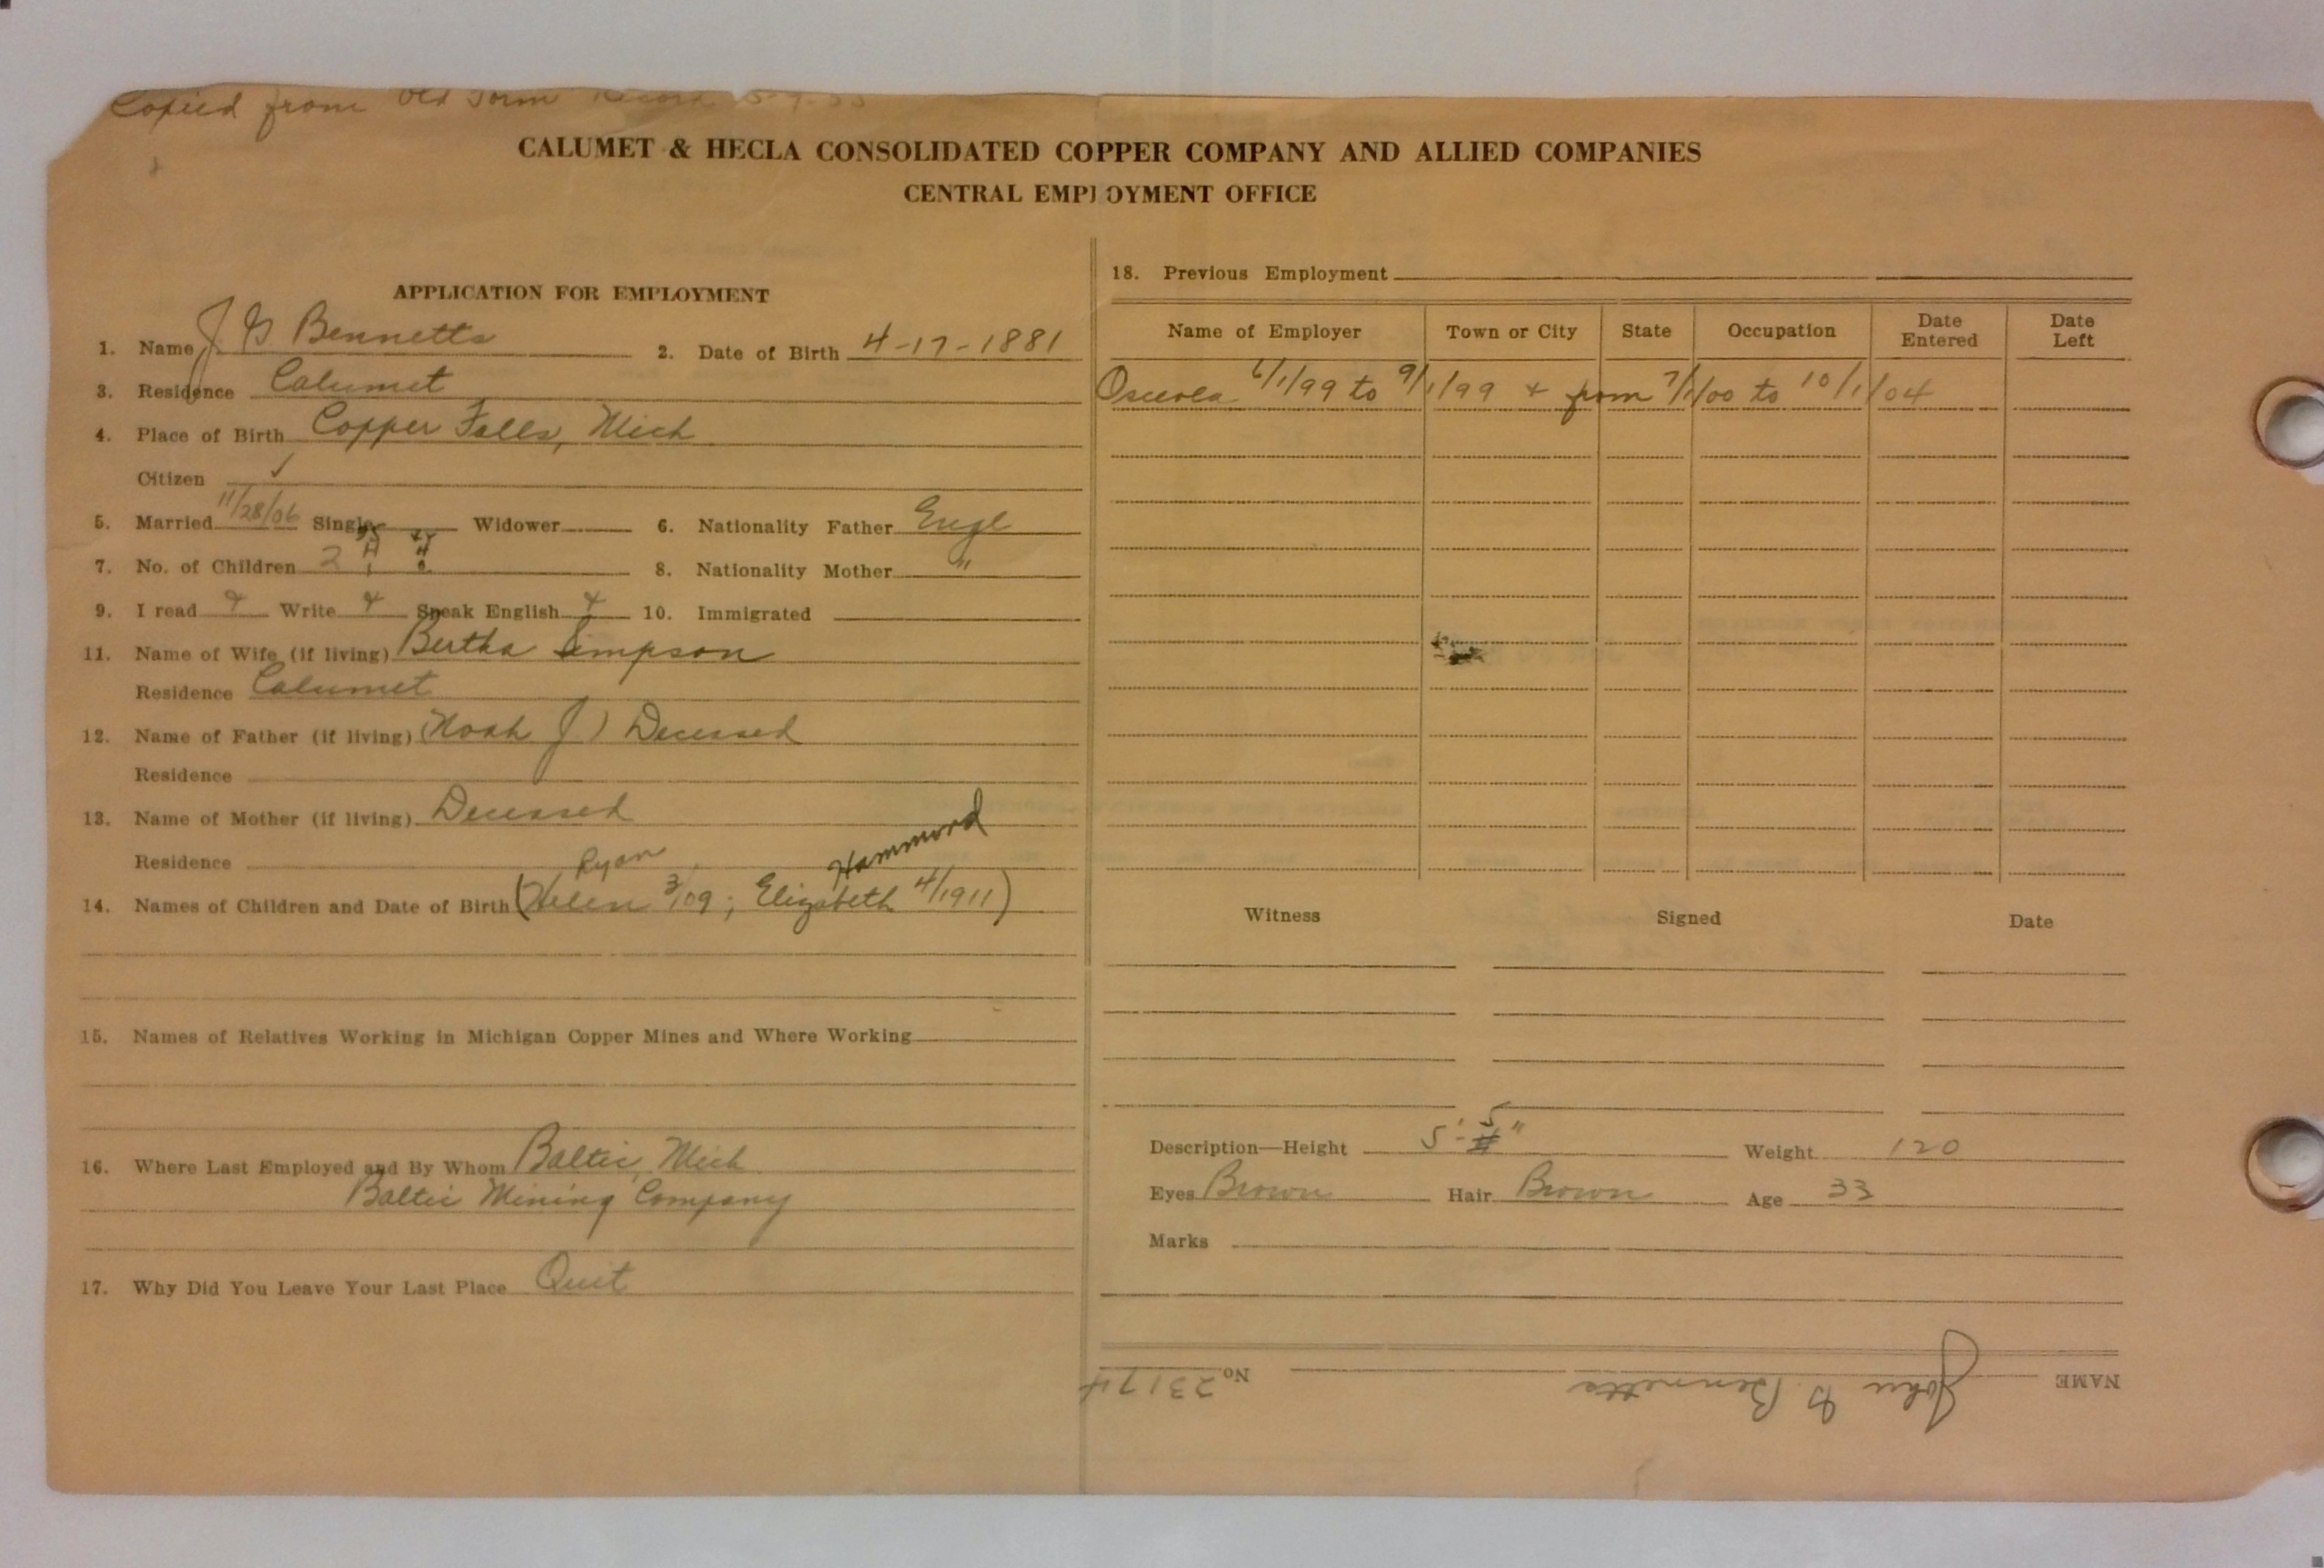 Copied from Old Form Record
CALUMET & HECLA CONSOLIDATED COPPER COMPANY AND ALLIED COMPANIES
CENTRAL EMPLOYMENT OFFICE
APPLICATION FOR EMPLOYMENT
1. Name J. G Bennetts 2. Date of Birth 4-17-1881
3. Residence Calumet
4. Place of Birth Copper Falls, Mich
Citizen ✓
5. Married 11/28/06 Single Widower 6. Nationality Father Engl
7. No. of Children 2 8. Nationality Mother "
9. I read Write Speak English 10. Immigrated
11. Name of Wife (if living) Bertha Simpson
Residence Calumet
12. Name of Father (if living) (Noah J.) Deceased
Residence
13. Name of Mother (if living) Deceased
Residence
Ryan Hammond
14. Names of Children and Date of Birth (Helen 3/09; Elizabeth 4/1911)
15. Names of Relatives Working in Michigan Copper Mines and Where Working
16. Where Last Employed and By Whom Baltic, Mich
Baltic Mining Company
17. Why Did You Leave Your Last Place Quit
18. Previous Employment
Name of Employer Town or City State Occupation Date Entered Date Left
Osceola 6/1/99 to 9/1/99 + from 7/1/00 to 10/1/04
Witness Signed Date
Description—Height 5'-5" Weight 120
Eyes Brown Hair Brown Age 33
Marks
NAME John G. Bennetts No 23174